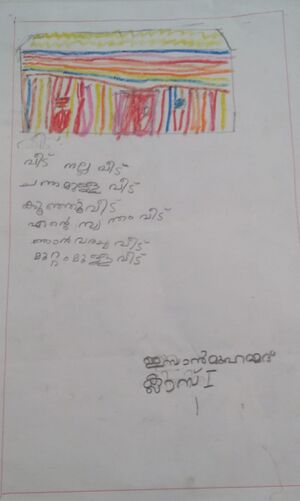 വീട്
വീട് നല്ല വീട്
ചന്തമുള്ള വീട്
കുഞ്ഞുവീട്
എന്റെ സ്വന്തം വീട്
ഞാൻ വരച്ച വീട്
മുറ്റംമുള്ള വീട്
ഇസാൻമുഹമ്മദ്
ക്ലാസ് I